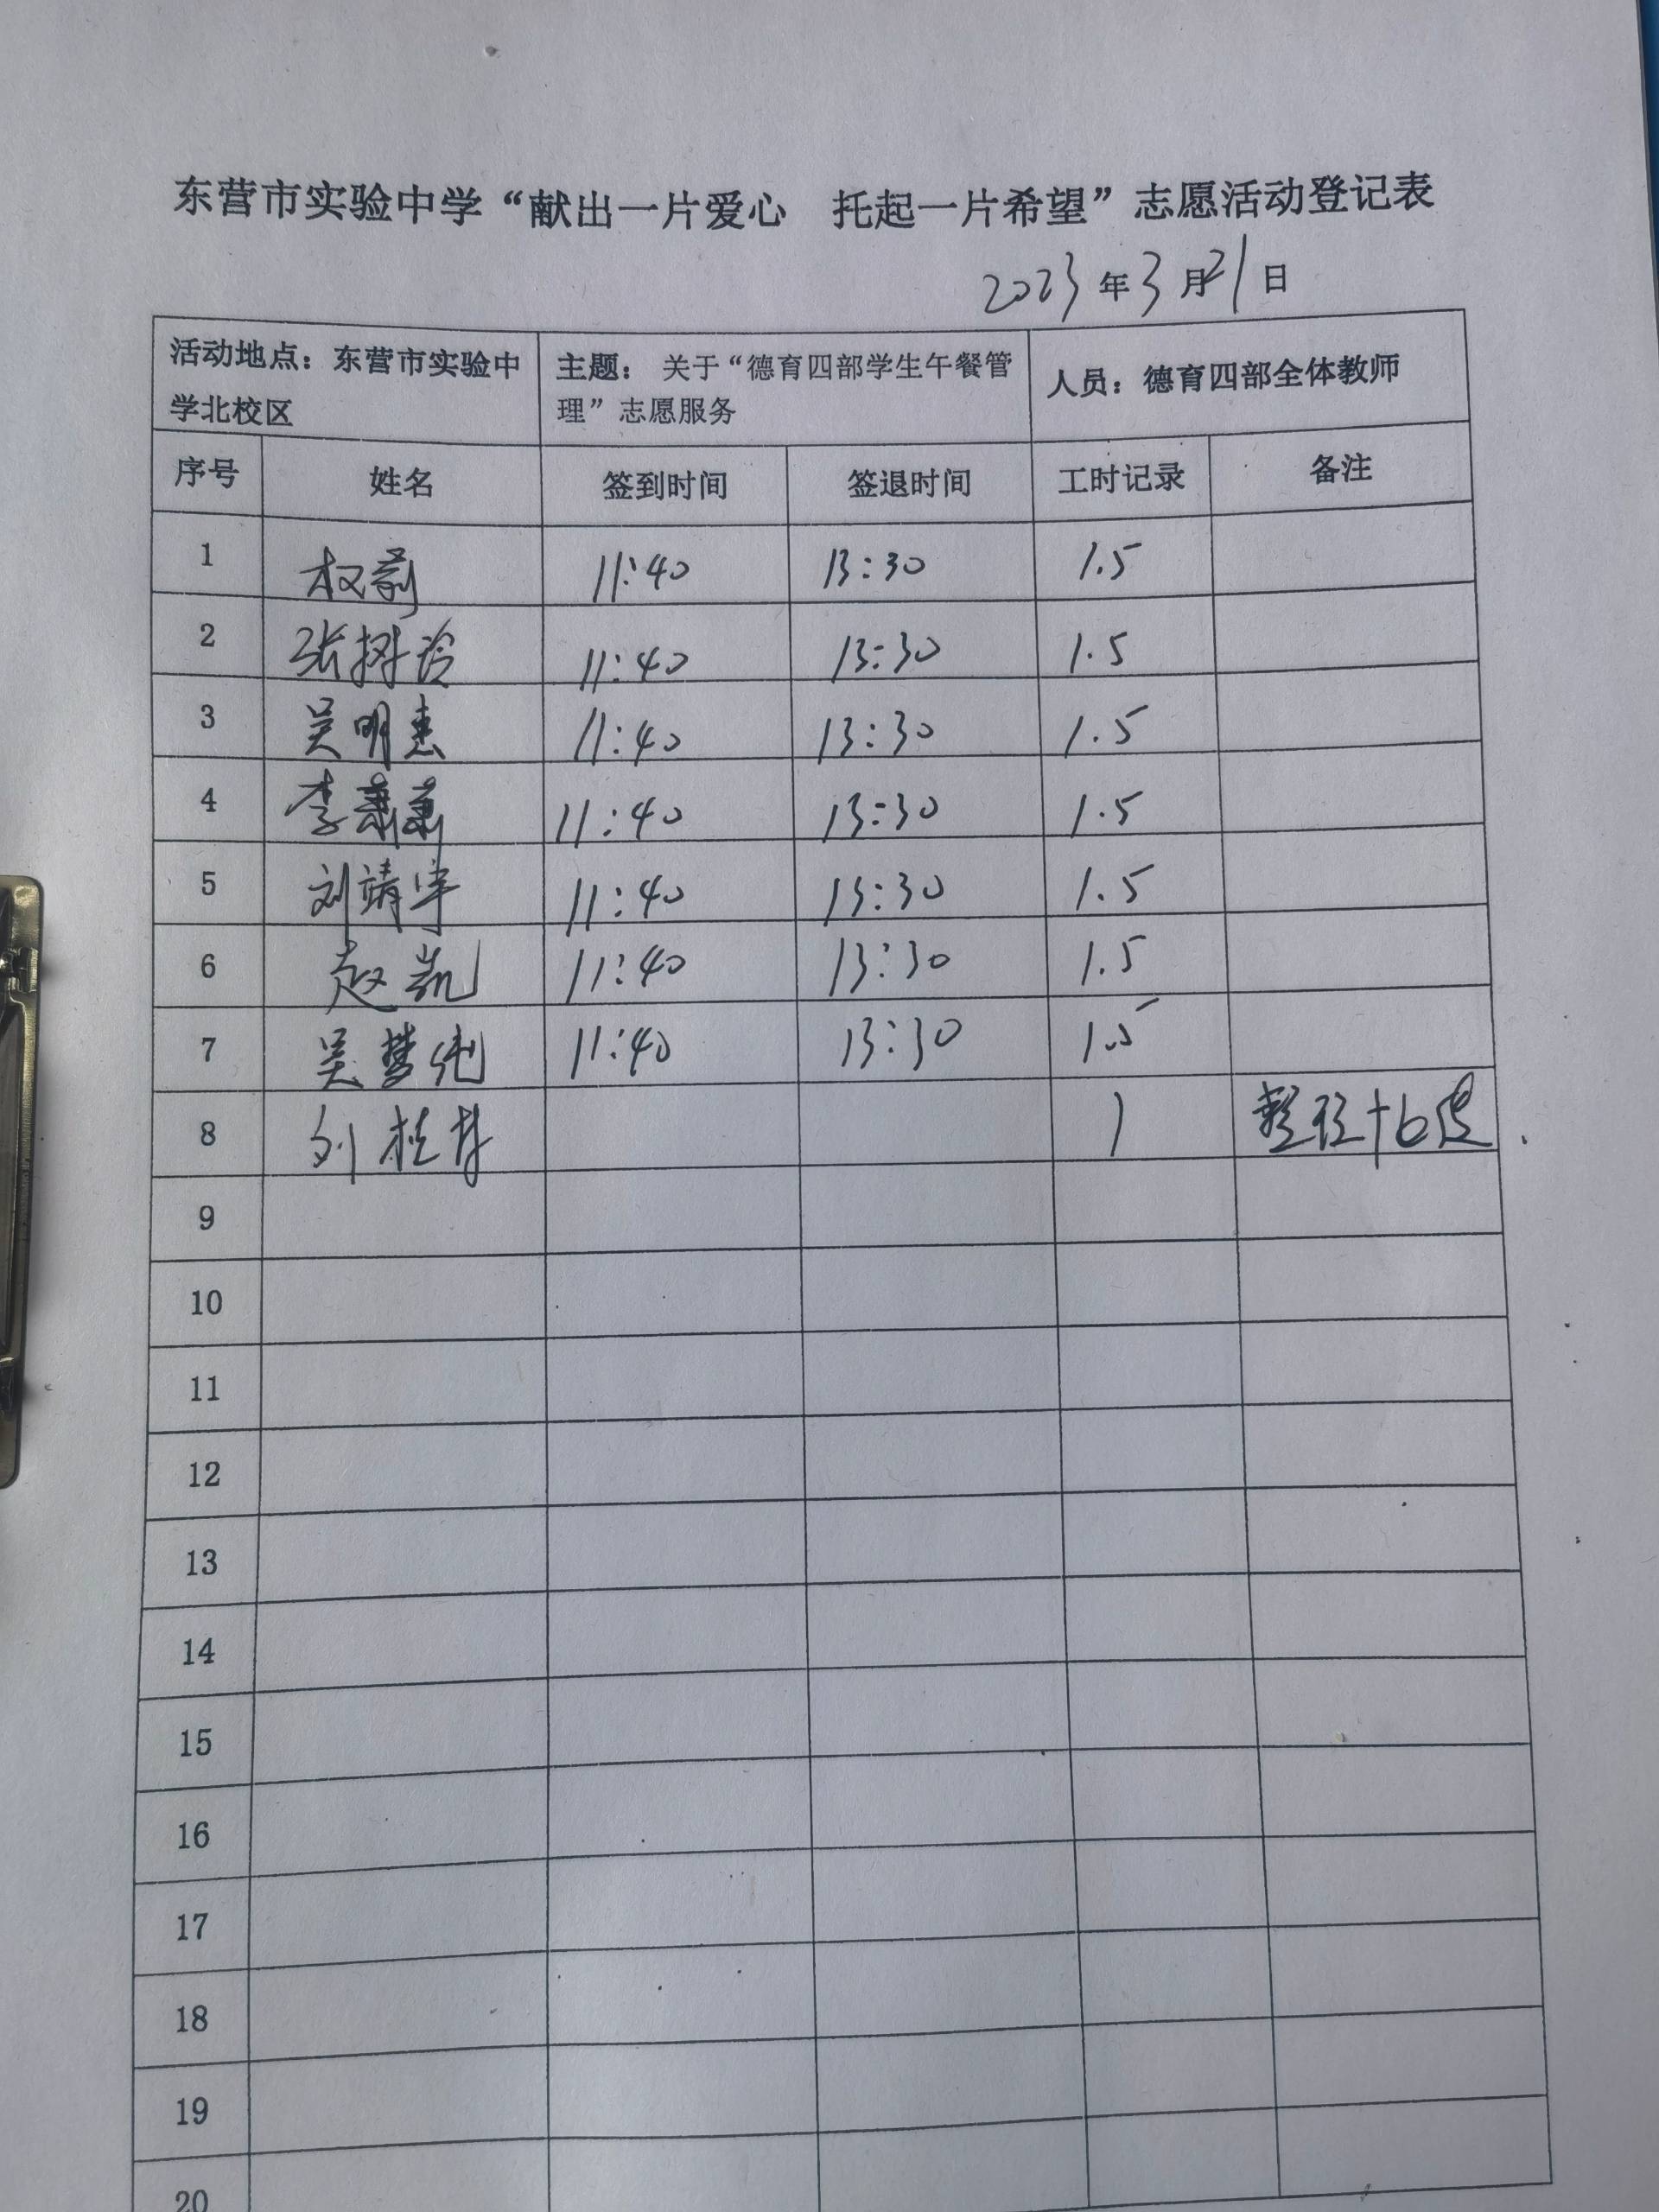 东营市实验中学“献出一片爱心 托起一片希望”志愿活动登记表
2023年3月21日
活动地点：东营市实验中学北校区 主题： 关于“德育四部学生午餐管理”志愿服务 人员：德育四部全体教师
序号 姓名 签到时间 签退时间 工时记录 备注
1 权蔚 11:40 13:30 1.5
2 张树玲 11:40 13:30 1.5
3 吴明惠 11:40 13:30 1.5
4 李萧萧 11:40 13:30 1.5
5 刘靖宇 11:40 13:30 1.5
6 赵凯 11:40 13:30 1.5
7 吴梦纯 11:40 13:30 1.5
8 刘 1
9
10
11
12
13
14
15
16
17
18
19
20